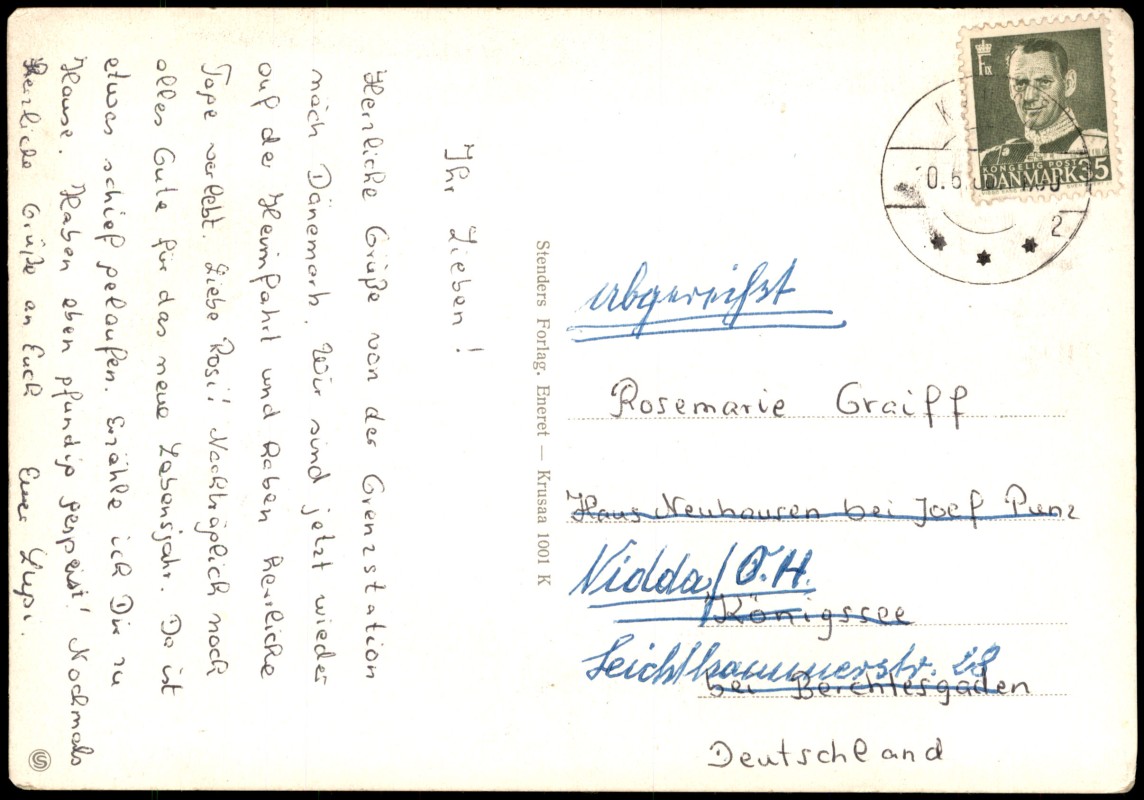 Ihr Lieben!
Herzliche Grüße von der Grenzstation
nach Dänemark. Wir sind jetzt wieder
auf der Heimfahrt und haben herrliche
Tage verlebt. Liebe Rosi! Nachträglich noch
alles Gute für das neue Lebensjahr. Da ist
etwas schief gelaufen. Erzähle ich Dir zu
Hause. Haben eben pfundig gespeist! Nochmals
Herzliche Grüße an Euch Eure
Stenders Forlag. Eneret — Krusaa 1001 K
Fix
KONGELIG POST
DANMARK 35
2
abgereißt
Rosemarie Graiff
Haus Neuhausen bei Josef Punz
Nidda/O.H.
Königssee
Leichtkammerstr. 28
bei Berchtesgaden
Deutschland